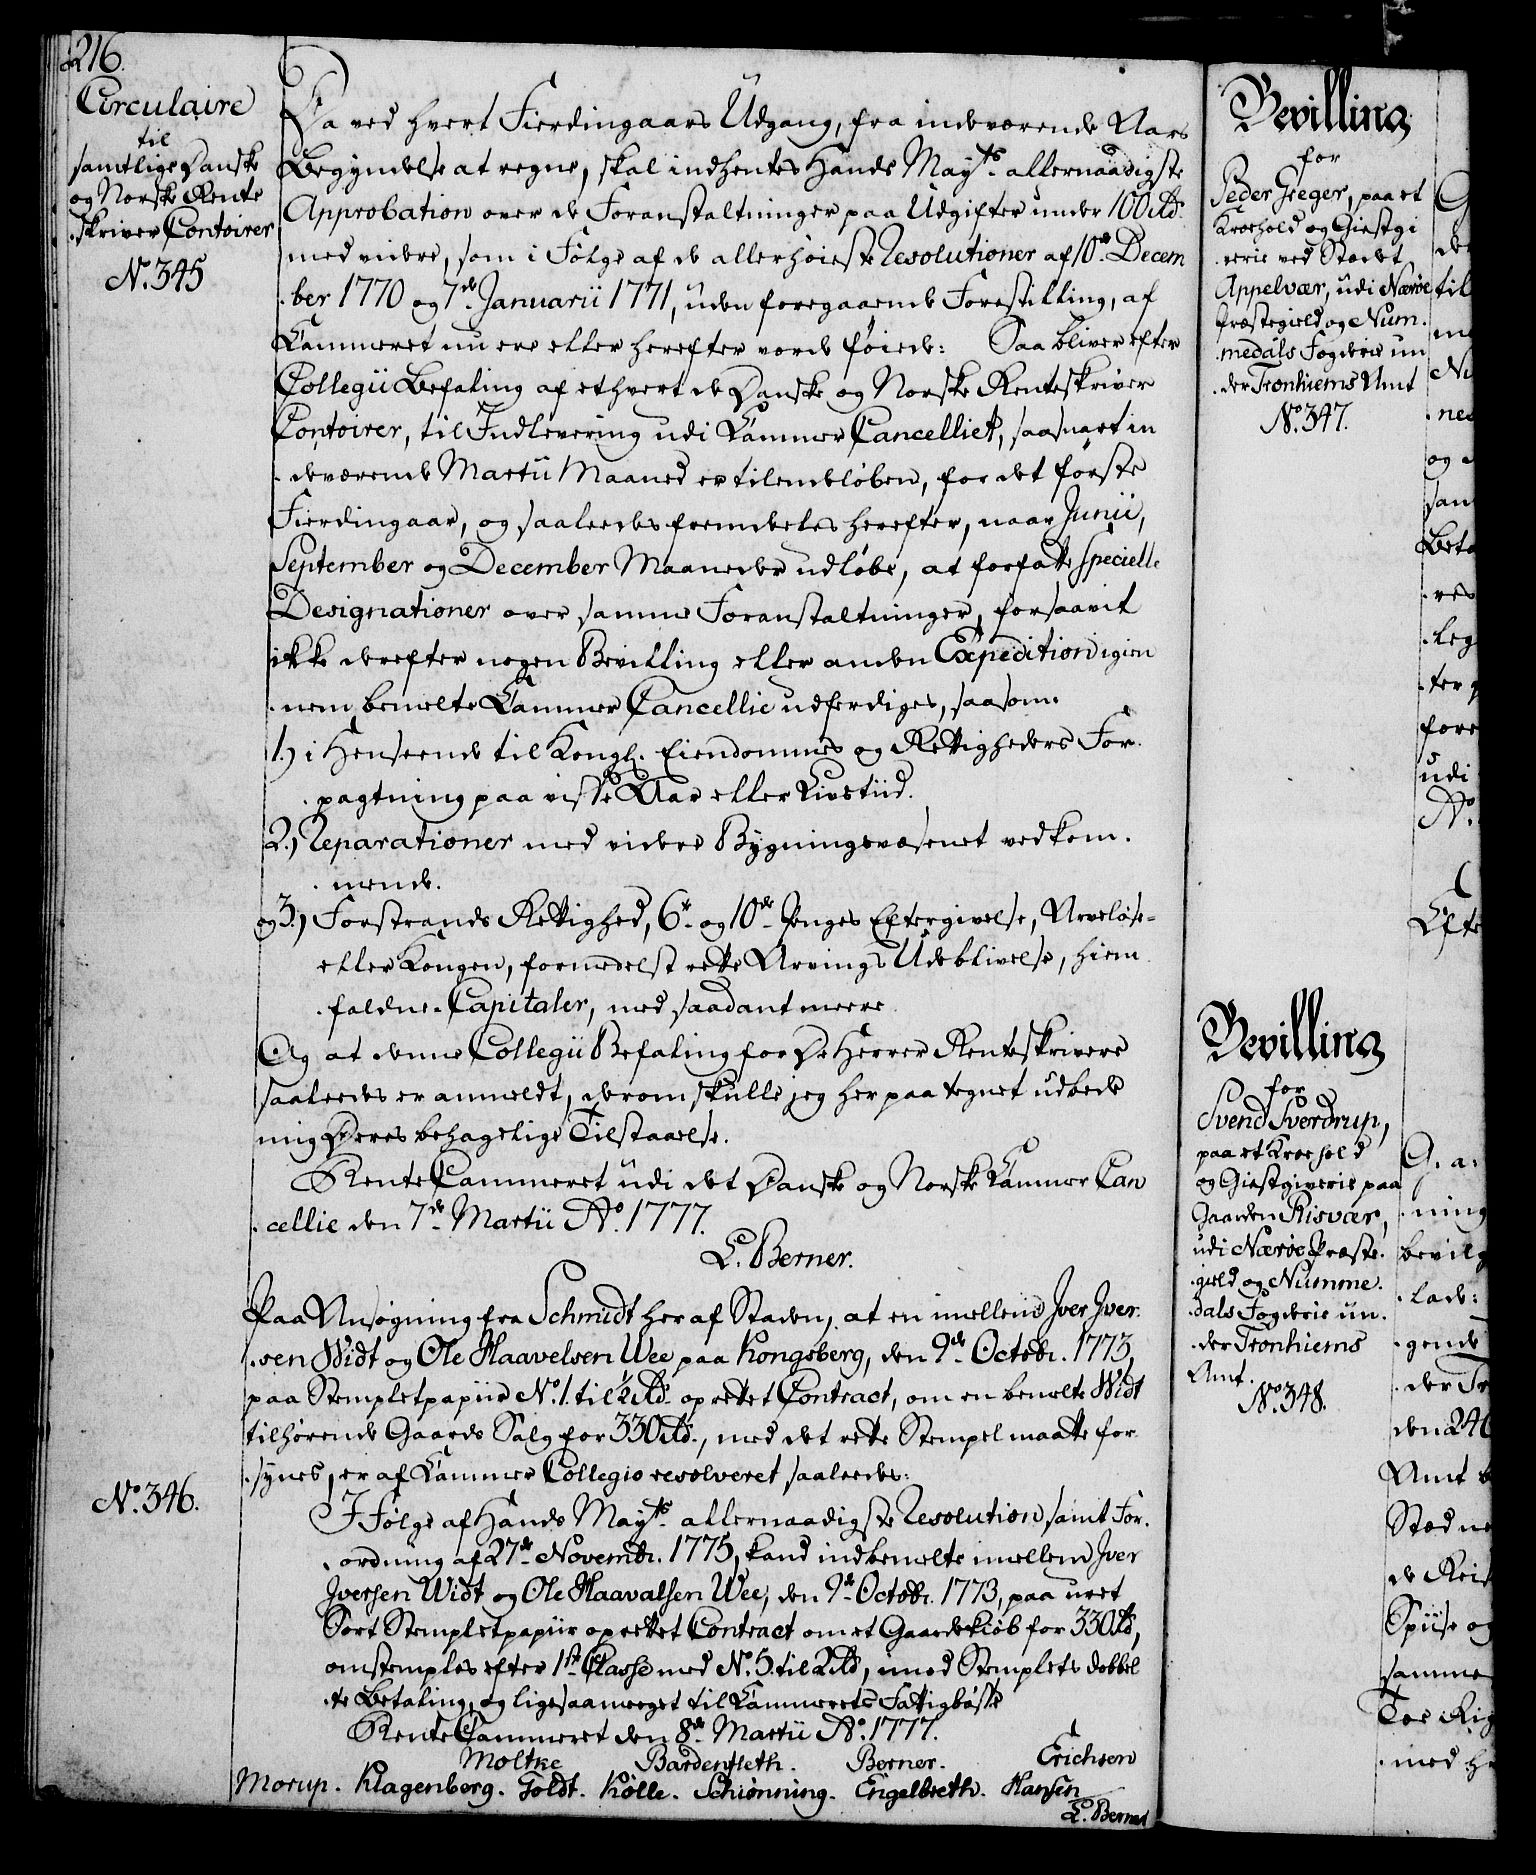 216.
Circulaire
til
samtlige Danske
og Norske Rente
skriver Contoirer
N. 345
Da ved hvert Fierdingaars Udgang, fra indeværende Aars
Begyndelse at regne, skal indhentes Hands Mayts allernaadigste
Approbation over de Foranstaltninger paa Udgifter under 100 rd.
med videre, som i Følge af de allerhøieste Resolutioner af 10de Decem
ber 1770 og 7de Januarii 1771, uden foregaaende Forestilling, af
Cammeret nu ere eller herefter vorde føiede: Saa bliver efter
Collegii Befaling af ethvert de Danske og Norske Renteskriver
Contoirer, til Indlevering udi Cammer Cancelliet, saasnart in
deværende Martii Maaned er tilendeløben, for det første
Fierdingaar, og saaleedes fremdeles herefter, naar Junii,
September og December Maaneder udløbe, at forfatte specielle
Designationer over samme Foranstaltninger, forsaavit
ikke derefter nogen Bevilling eller anden Expedition igien
nem bemelte Cammer Cancellie udferdiges, saasom.
1.) i Henseende til Kongl. Eiendommes og Rettigheders For
pagtning paa visse Aar eller Livstiid.
2.) Reparationer med videre Bygningsvæsenet vedkom
mende.
og 3.) Forstrands Rettighed, 6te og 10de Penges Eftergivelse, Arveløse
eller Kongen, formedelst rette Arvings Udeblivelse, hiem
faldne Capitaler, med saadant meere
Og at denne Collegii Befaling for De Herrer Renteskrivere
saaleedes er anmeldt, derom skulle jeg her paa tegnet udbede
mig Deres behagelige Tilstaaelse.
Rente Cammeret udi det Danske og Norske Cammer Can
cellie den 7de Martii Ao. 1777.
C. Berner.
Paa Ansøgning fra Schmidt her af Staden, at en imellem Iver Iver
sen Widt og Ole Haavelsen Wee paa Kongsberg, den 9de Octobr. 1773,
paa Stemplet papiir No. 1. til ½ rd. oprettet Contract, om en bemelte Widt
tilhørende Gaards Salg for 330 rd., med det rette Stempel maatte for
synes, er af Cammer Collegio resolveret saaleedes:
No. 346.
I Følge af Hands Mayts allernaadigste Resolution samt For
ordning af 27de Novembr. 1775, kand indbemelte imellem Iver
Iversen Widt og Ole Haavalsen Wee, den 9de Octobr. 1773, paa uret
Sort Stemplet papiir oprettet Contract om et Gaardekiøb for 330 rd,
omstemples efter 1ste Classe med No. 5. til 2 rd, imod Stemplets dobbel
te Betaling, og ligesaameeget til Cammerets Fattigbøsse
Rente Cammeret den 8de Martii Ao. 1777.
Moltke Bardenfleth. Berner. Erichsen
Morup. Klagenberg. Toldt. Kølle. Schiønning. Engelbreth. Hansen
C. Berner
Bevilling
for
Peder Greger, paa et
Kroehold og Giestgi
verie ved Stædet
Appelvær, udi Nærøe
Præstegield og Num
medals Fogderie un
der Tronhiems Amt
No. 347.
Bevilling
for
Svend Sverdrup,
paa et Kroehold
og Giestgiverie paa
Gaarden Risvær,
udi Nærøe Præste
gield og Numme
dals Fogderie un
der Tronhiems
Amt.
No. 348.
til
nes
og
san
Beta
res
leg
ter
fore
udi
No.
Efte
G. a:
ning
bevilg
lade:
gende
der Tr
den 24
Amt
Stæd
de Reis
Spiise og
samme
Toe Rig
med